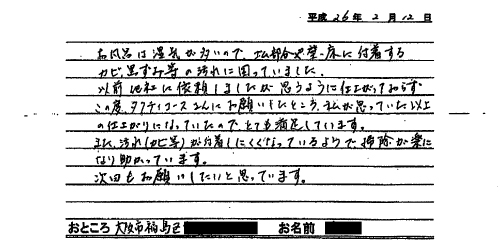 平成 26年 2月 12日
お風呂は湿気が多いので、ゴム部分や壁・床に付着する
カビ、黒ずみ等の汚れに困っていました。
以前他社に依頼しましたが思うように仕上がっておらず
この度、タフティコースさんにお願いしたところ、私が思っていた以上
の仕上がりになっていたので、とても満足しています。
また、汚れ(カビ等)が付着しにくくなっているようで掃除が楽に
なり助かっています。
次回もお願いしたいと思っています。
おところ 大阪市福島区 お名前